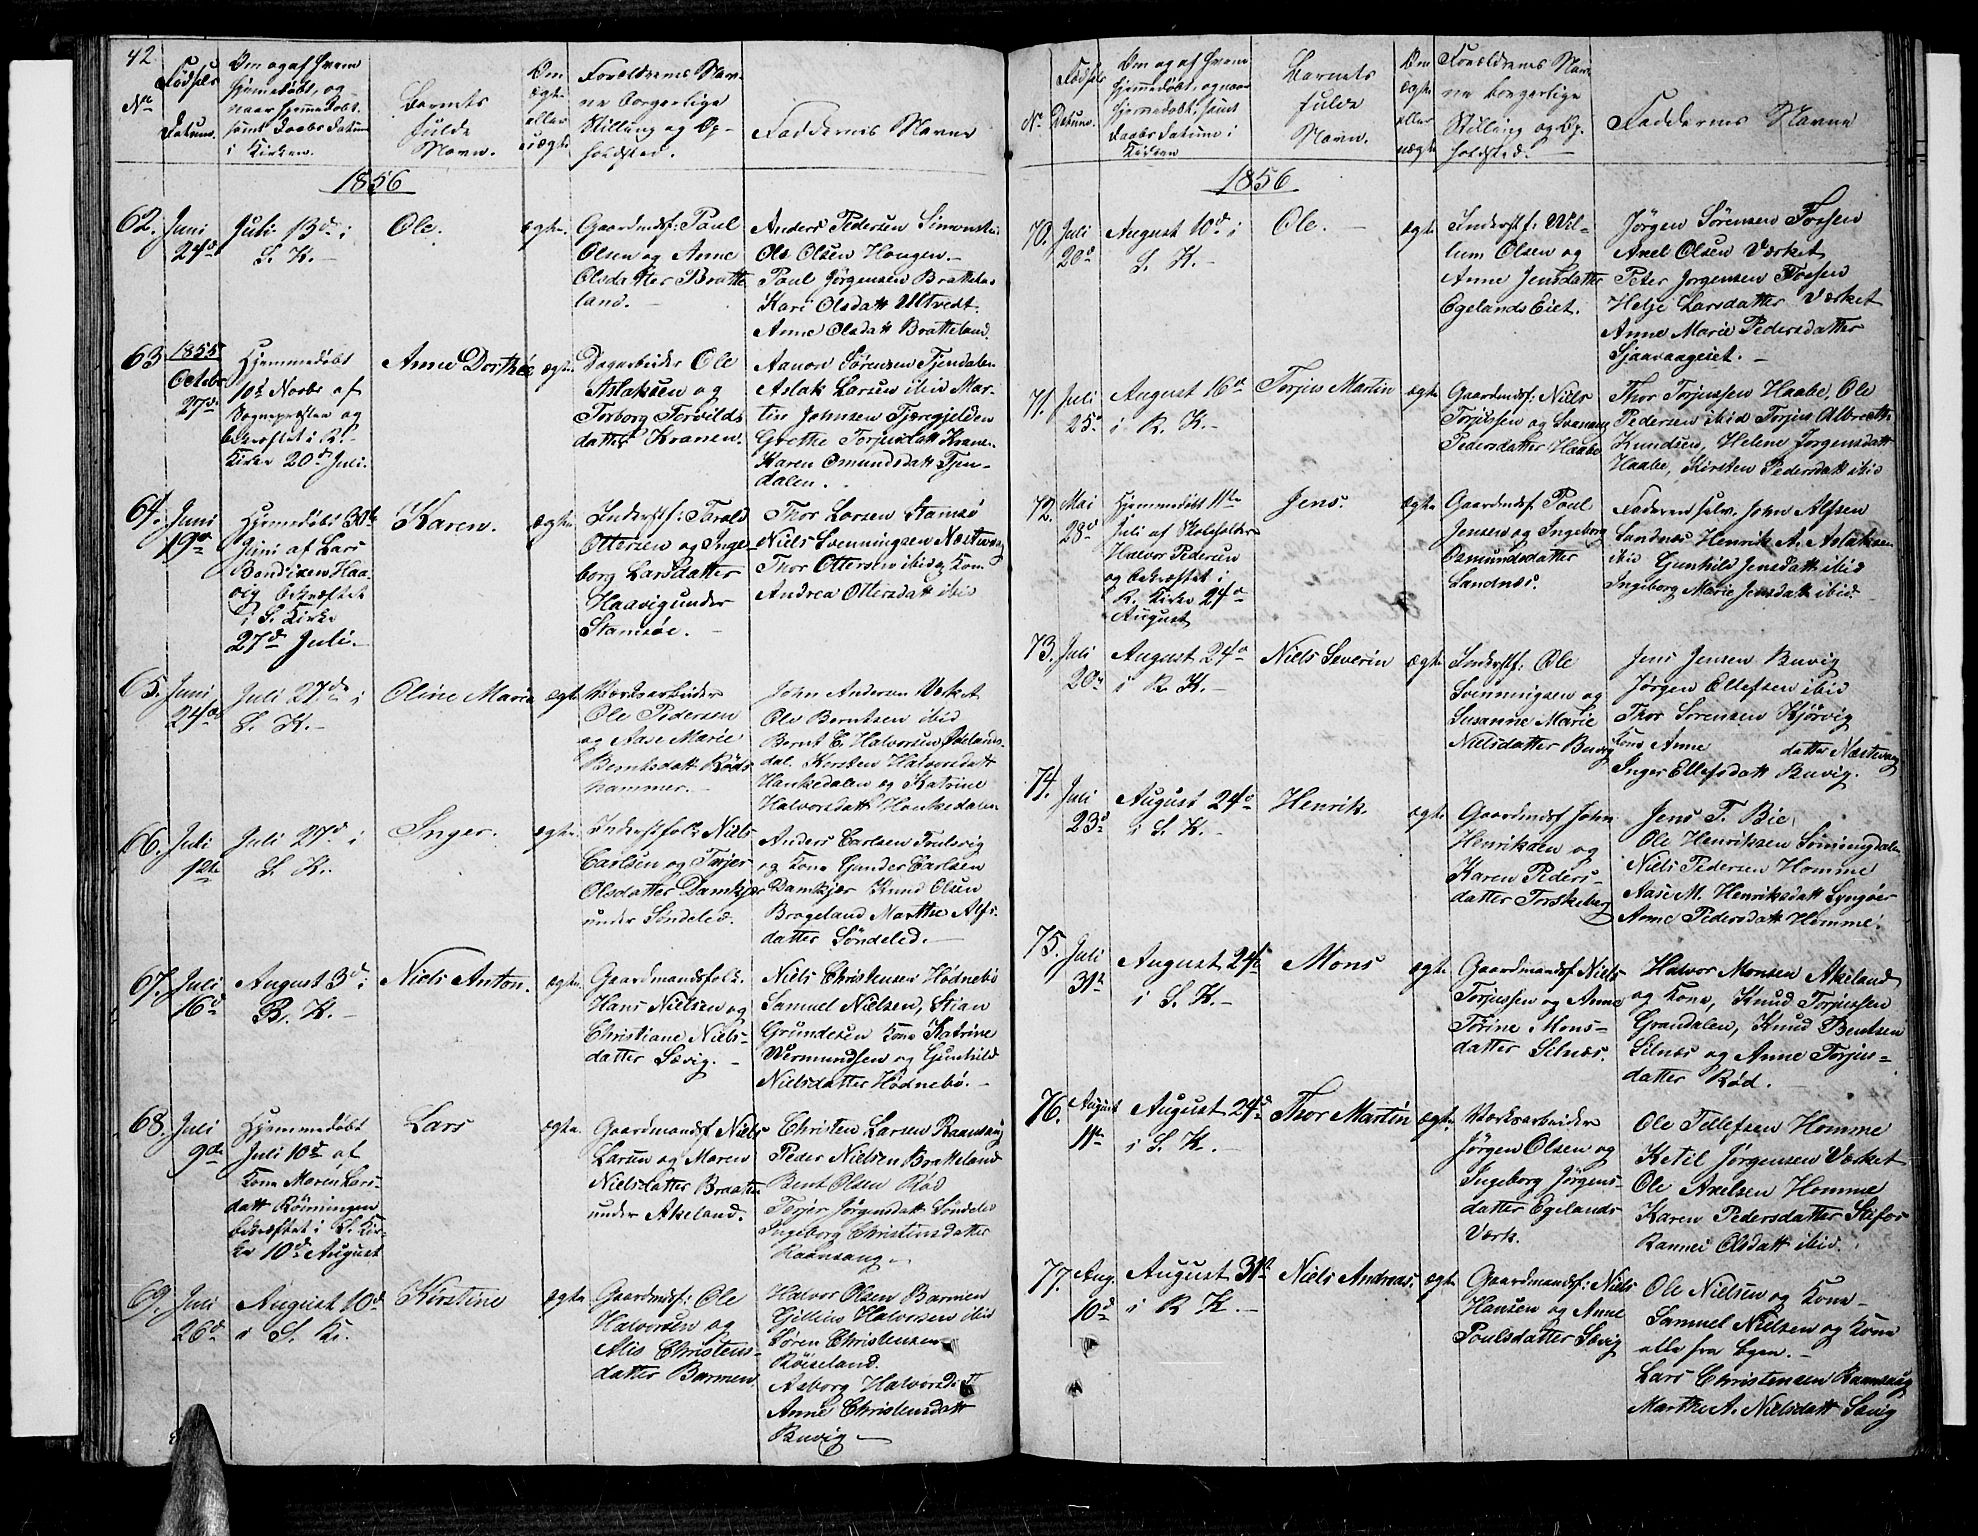 42
No
Fødsels
Datum.
Om og af hvem
hjemmedøbt, og
naar hjemmedøbt
samt Daabs Datum
i Kirken.
Barnets
fulde
Navn.
Om
ægte
eller
uægte
Forældrenes Nav-
ne borgerlige
Stilling og Op-
holdsted.
Faddernes Navne
1856
62. Juni 24de
Juli 13de i
S. K. -
Ole.
ægte.
Gaardmdsf: Paul
Olsen og Anne
Olsdatter Bratte
land. -
Anders Pedersen
Ole Olsen Haugen.
Paul Jørgensen
Kari Olsdatt Utvedt.
Anne Olsdatt Bratteland.
63 1855
Octobr
27de
Hjemmedøbt
10de Novbr af
Sognepræsten og
bekræftet i R.-
Kirke 20de Juli.
Anne Dorthea
ægte.
Dagarbeider Ole
Aslaksen og
Torborg Torvilds
datter Kranen.
Aanon Sørensen Fjendalen
Aslak Larsen ibid Mar-
tin Johnsen
Grethe Torjusdatt Kranen
Karen Omundsdatt Fjen-
dalen. -
64. Juni
19de
Hjemmedøbt 30te
Juni af Lars
Bendixen Haa-
vig bekræftet
i S. Kirke
27de Juli. -
Karen.
ægte
Inderstf: Tarald
Ottersen og Inge-
borg Larsdatter
Haavig under
Stamsøe. -
Thor Larsen Stamsø
Niels Svenningsen Næstvog
Thor Ottersen ibid og Kone
Andrea Ottersdatt ibid
65. Juni
24de
Juli 27de i
S. K. -
Oline Marie
ægte
Værksarbeider
Ole Pedersen
og Aase Marie
Berntsdatt Røds
hammer. -
John Andersen Værket
Ole Berntsen ibid
Bernt E. Halvorsen
dal. Kirsten Halvorsdatt
Hankedalen og Katrine
Halvorsdatt Hankedalen
66. Juli
12te
Juli 27de i
S. K.
Inger.
ægte.
Inderstfolk Niels
Carlsen og Terjer
Olsdatter Damkjær
under Søndeled.
Anders Carlsen
og Kone Gunder Carlsen
Damkjær Knud Olsen
Brageland Marthe Alfs-
datter Søndeled. -
67. Juli
16de
August 3de i
R. K. -
Niels Anton.
ægte.
Gaardmandsfolk
Hans Nielsen og
Christiane Niels-
datter Sævig. -
Niels Christensen Hødnebø
Samuel Nielsen, Stian
Grundesen Kone Katrine
Wermundsen og Gunhild
Nielsdatter Hødnebø. -
68. Juli
9de
Hjemmedøbt
Juli 10de af
Kone Maren Lars-
datt Rønningen
bekræftet i S. Kir-
ke 10de August
Lars
ægte
Gaardmandsf. Niels
Larsen og Maren
Nielsdatter Braaten
under Akeland.
Christen Larsen Ramsaug
Peder Nielsen Bratteland
Bent Olsen Rød
Terjer Jørgendatt Søndeled
Ingeborg Christensdatter
Ramsaug. -
69. Juli
26de
August 10de
i S. K.
Kirstine
ægte
Gaardmdsf: Ole
Halvorsen og
Alis Christens-
datter Barmen.
Halvor Olsen Barmen
Halvorsen ibid
Søren Christensen
Røiseland.
Asborg Halvorsd.
Anne Christensdatt
Buvig -
No
Fødsels
Datum.
Om og af hvem
hjemmedøbt, og naar
hjemmedøbt, samt
Daabs Datum i
Kirken
Barnets
fulde
Navn.
Om
ægte
eller
uægte
Forældrenes Nav-
ne borgerlige
Stilling og Op-
holdsted.
Faddernes Navne
1856
70. Juli
20de
August 10de i
S. K. -
Ole. -
ægte
Inderstf: Wil-
lum Olsen og
Anne Jensdatter
Egelands Eiet.
Jørgen Sørensen Fossen
Axel Olsen Værket
Peter Jørgensen Fossen
Helje Larsdatter Værket
Anne Marie Pedersdatter
Sjaavaageiet. -
71. Juli
25de
August 16de
i R. K. -
Torjus Martin
ægte
Gaardmdsf: Niels
Torjussen og
Pedersdatter Haabe
Thor Torjussen Haabe, Ole
Pedersen ibid Torjus Albrecth
Knudsen, Helene Jørgensdatt
Haabe, Kirsten Pedersdatt ibid
72. Mai
28de
Hjemmedøbt 11te
Juli af Skoleholder
Halvor Pedersen
og bekræftet i
R. Kirke 24de
August
Jens.
ægte
Gaardmdsf: Poul
Jensen og Ingeborg
Osmundsdatter
Sandnæs.
Faderen selv. John Alfsen
Sandnæs Henrik A. Aslaksen
ibid Gunhild Jensdatt ibid
Ingeborg Marie Jensdatt ibid.
73. Juli
20de
August 24de
i R. K. -
Niels Severin
ægte
Inderstf: Ole
Svenningsen og
Susanne Marie
Nielsdatter Buvig
Jens Jensen Buvig
Jørgen Ellefsen ibid
Thor Sørensen Kjørvig
Kone Anne datter Næstvog
Inger Ellefsdatt Buvig.
74. Juli
23de
August 24de
i S. K. -
Henrik.
ægte
Gaardmdsf John
Henriksen og
Karen Peders-
datter Torskeberg
Jens T. Bie,
Ole Henriksen
Niels Pedersen Homme
Aase M. Henriksdatt Lyngøer
Anne Pedersdatt Homme.
75. Juli
31te
August 24de
i S. K. -
Mons
ægte
Gaardmandsf Niels
Torjussen og Anne
Torine Mons-
datter Selnæs.
Halvor Monsen Akeland
og Kone, Knud Torjussen
Grandalen, Knud Bentsen
Selnæs og Anne Torjus-
datter Rød. -
76. August
11te
August 24de
i S. K. -
Thor Martin
ægte
Værksarbeider
Jørgen Olsen og
Ingeborg Jørgens-
datter Egelands
Værk.
Ole Tellefsen Homme
Ketil Jørgensen Værket
Ole Axelsen Homme
Karen Pedersdatter Stifos
Rannei Olsdatt ibid.
77. Aug.
10de
August 31te
i R K. -
Niels Andreas.
ægte
Gaardmandsf: Niels
Hansen og Anne
Poulsdatter Sævig
Ole Nielsen og Kone -
Samuel Nielsen og Kone
alle fra Egen. -
Lars Christensen Ramsaug
Marthe A. Nielsdatt Sævig